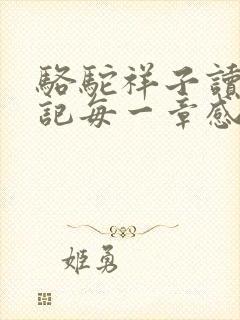 駱駝祥子讀
記每一章感
姬勇